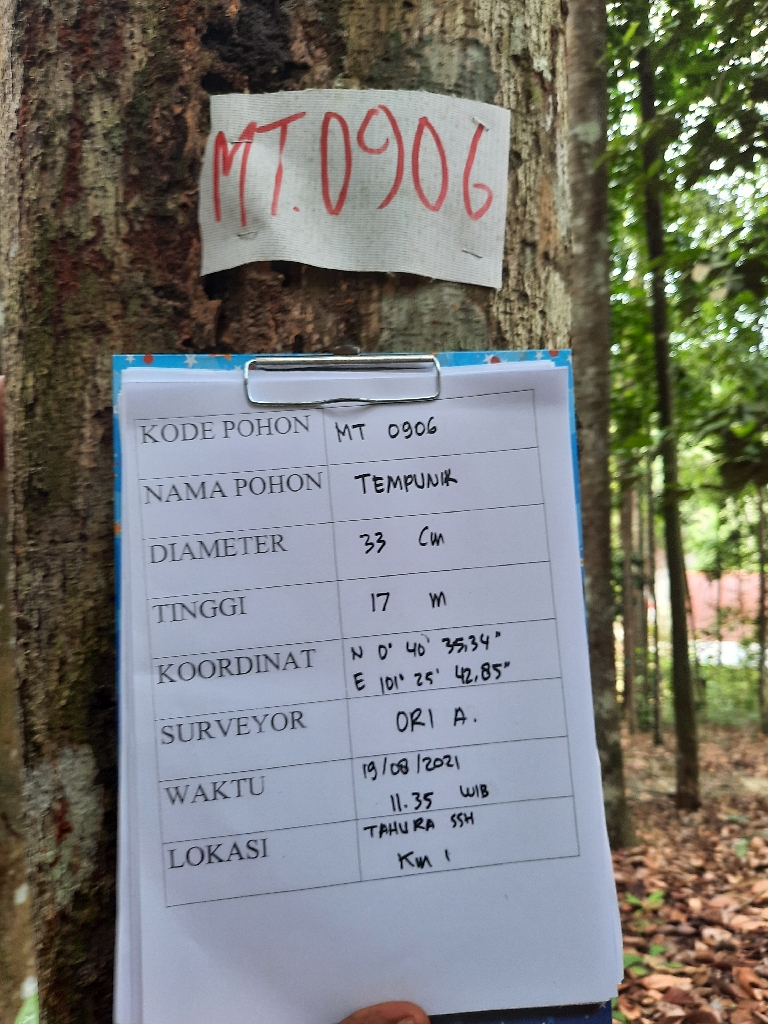 MT.0906
KODE POHON MT 0906
NAMA POHON TEMPUNIK
DIAMETER 33 Cm
TINGGI 17 m
KOORDINAT N 0° 40' 35,34"
E 101° 25' 42,85"
SURVEYOR ORI A.
WAKTU 19/08/2021
11.35 WIB
LOKASI TAHURA SSH
Km 1